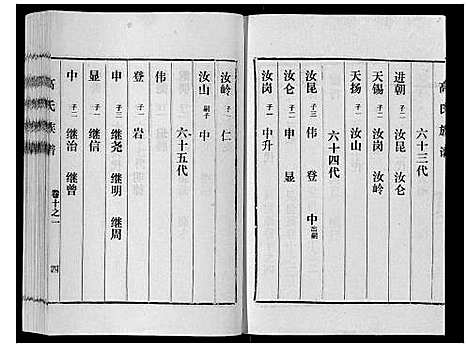 高氏族谱
六十三代
进朝 子二 汝昆 汝仑
天锡 子二 汝岗 汝岭
天扬 子一 汝山
六十四代
汝昆 子三 伟 登 中 出嗣
汝仑 子二 申 显
汝岗 子一 中升
汝岭 子一 仁
汝山 嗣子 中
六十五代
伟
登 子一 岩
申 子三 继尧 继明 继周
显 子一 继信
中 子二 继治 继曾
高氏族谱 卷十之一 四